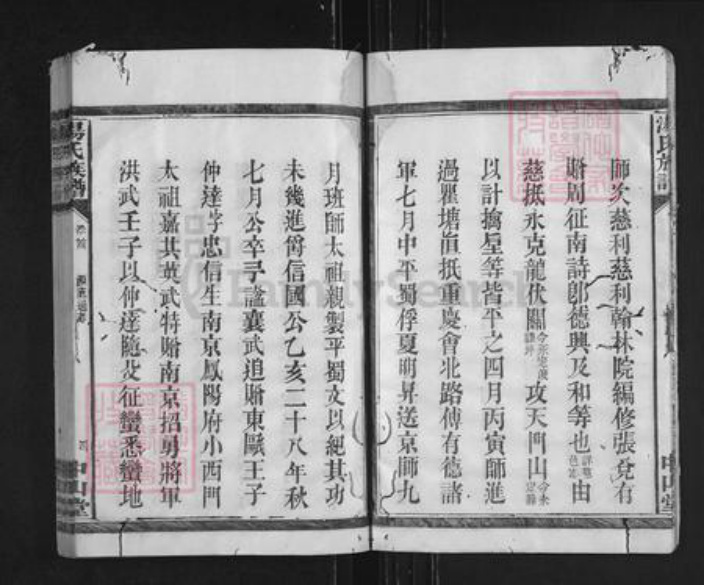 師次慈利慈利翰林院編修張兌有
贈周征南詩郎德興及和等也詳慈邑志由
慈抵永克龍伏關攻天門山今永定縣
以計擒星等皆平之四月丙寅師進
過瞿塘直抵重慶會北路傅有德諸
軍七月中平蜀俘夏明昇送京師九
月班師太祖親製平蜀文以紀其功
未幾進爵信國公乙亥二十八年秋
七月公卒予諡襄武追贈東甌王子
仲達字忠信生南京鳳陽府小西門
太祖嘉其英武特贈南京招勇將軍
洪武壬子以仲達隨父征蠻悉蠻地
湯氏族譜
四
中山堂
FamilySearch